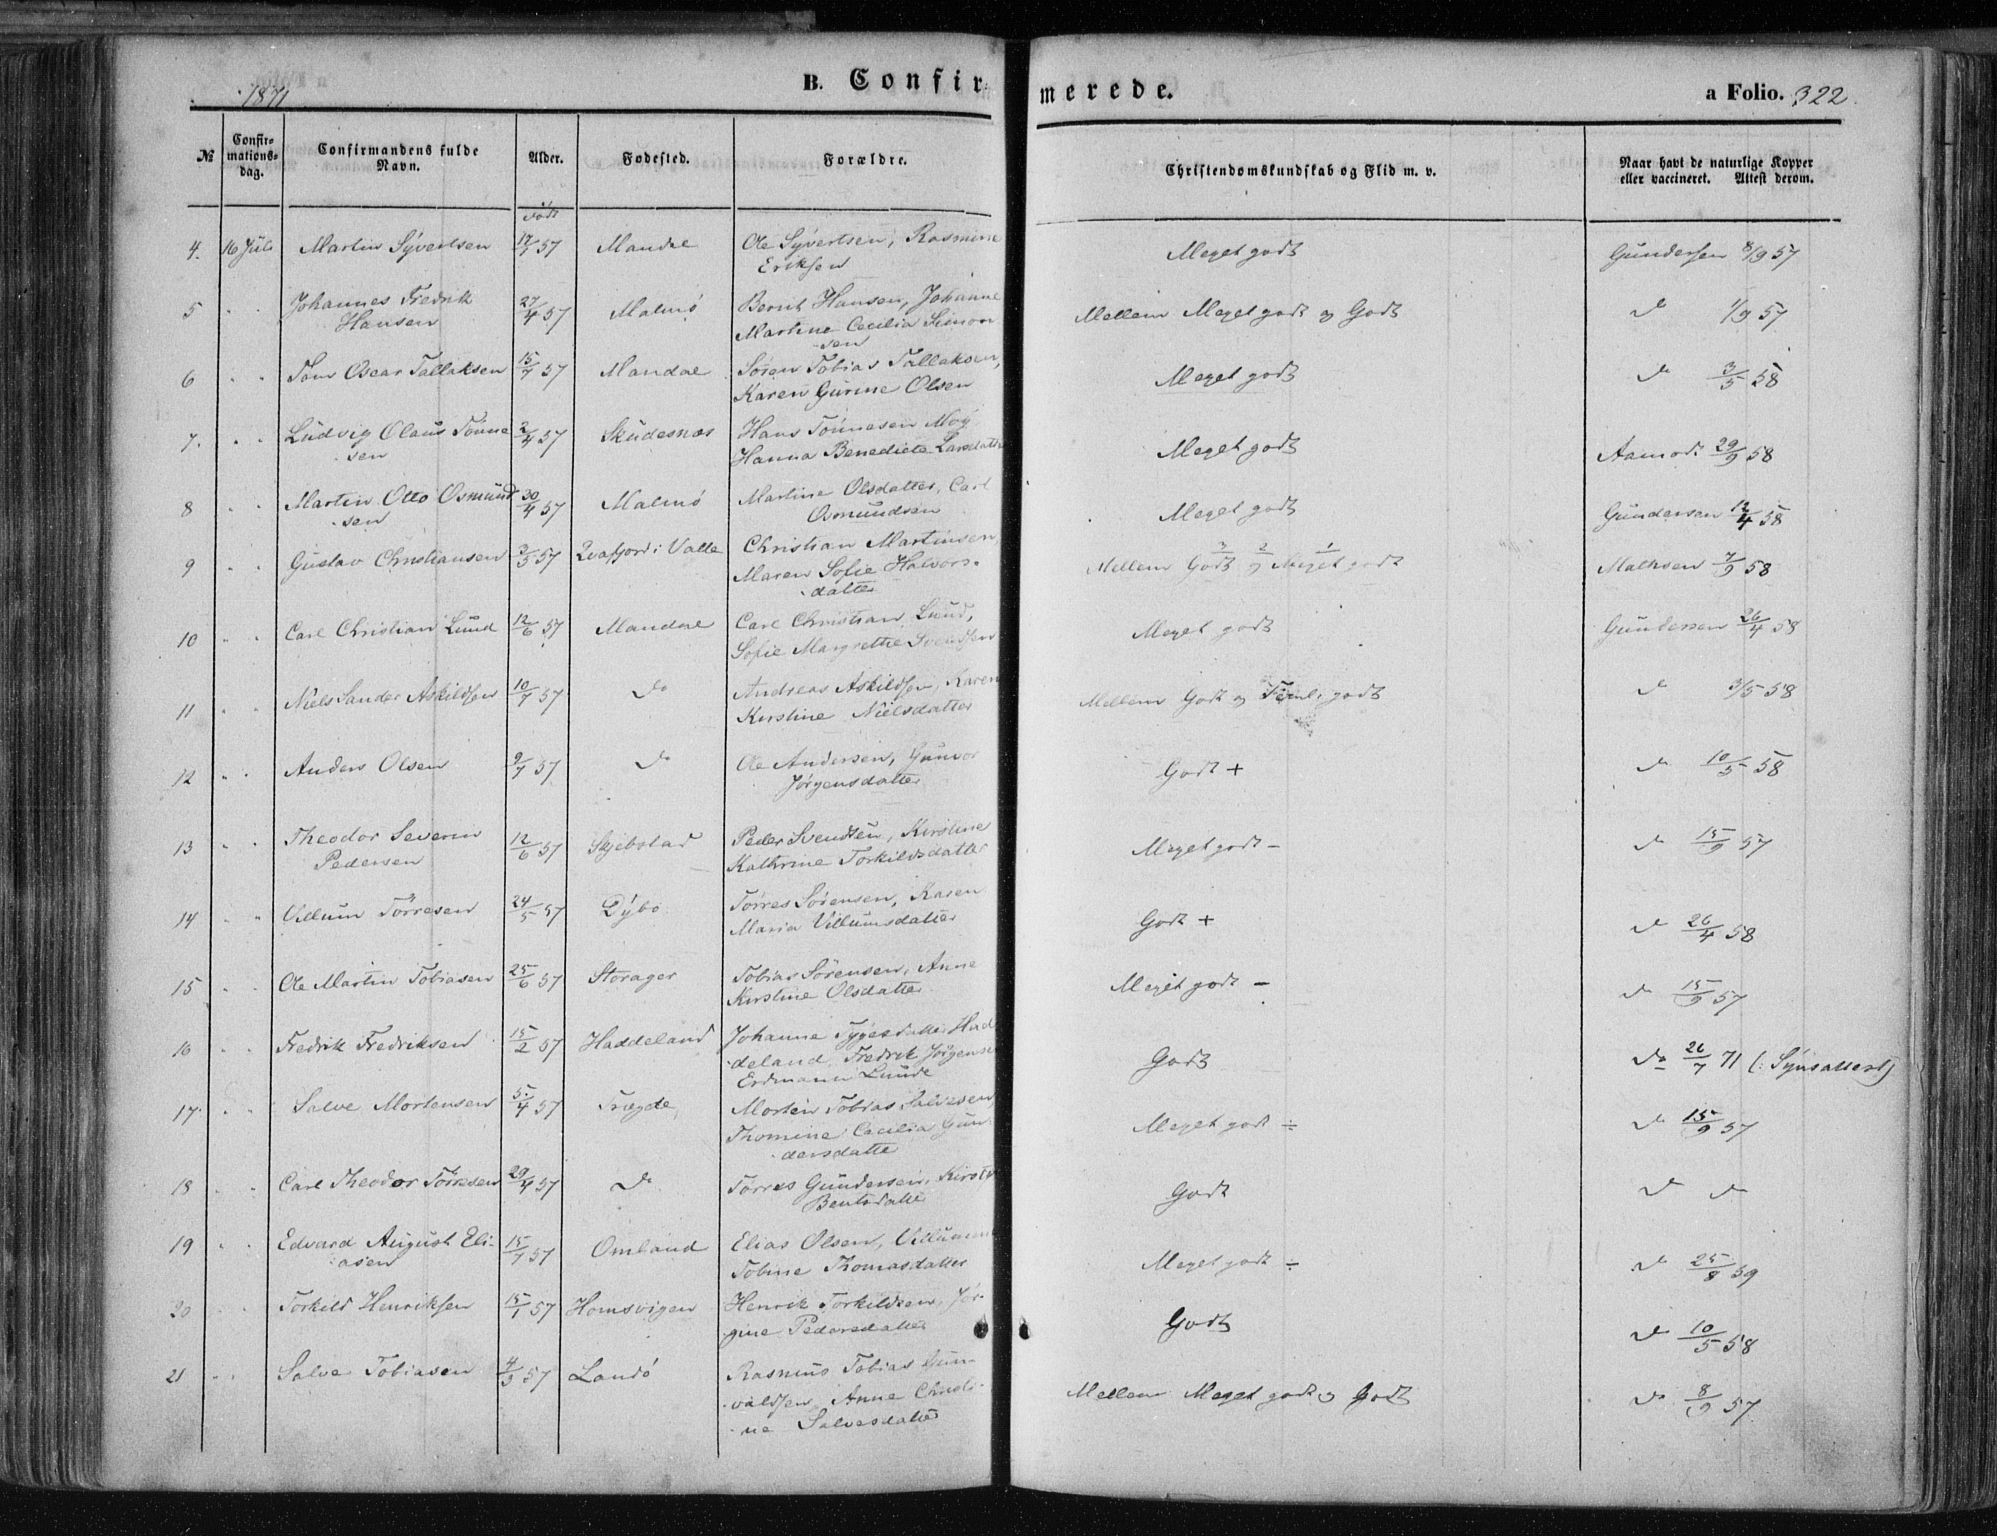 1871 B. Confirmerede. a Folio. 322.
№ Confirmationsdag. Confirmandens fulde Navn. Alder. Fødested. Forældre. Christendomskundskab og Flid m. v. Naar havt de naturlige Kopper eller vaccineret. Attest derom.
født
4. 16 Juli Martin Syvertsen 17/7 57 Mandal Ole Syvertsen, Rasmine Meget godt Gundersen 8/9 57
Eriksen
5 " " Johannes Fredrik 27/4 57 Malmö Bernt Hansen, Johanne Mellem Meget godt og Godt do 1/9 57
Hansen Martine Cecilia Simon
sen
6 " " Oscar Tallaksen 15/7 57 Mandal Søren Tobias Tallaksen, Meget godt do 3/5 58
Karen Gurine Olsen
7. " " Ludvig Olaus Tönne 2/4 57 Skudesnæs Hans Tönnesen Moy Meget godt Aamodt 29/9 58
sen Hanna Benedicte Larsdatter
8 " " Martin Otto Osmund 30/4 57 Malmö Martine Olsdatter, Carl Meget godt Gundersen 12/4 58
sen Osmundsen
9 " " Gustav Christiansen 3/5 57 i Valle Christian Martinsen, Mellem Godt og Meget godt Mathsen 7/9 58
3 2 1
Maren Sofie Halvors-
datter
10 " " Carl Christian Lund 12/6 57 Mandal Carl Christian Lund, Meget godt Gundersen 26/4 58
Sofie Margrethe Svendsen
11 " " Niels Sander Askildsen 10/7 57 do Andreas Askildsen, Karen Mellem Godt og Teml. godt do 3/5 58
Kirstine Nielsdatter
12 " " Anders Olsen 9/7 57 do Ole Andersen, Gunvor Godt + do 10/5 58
Jørgensdatter
13 " " Theodor Severin 12/6 57 Skjebstad Peder Svendsen, Kirstine Meget godt - do 15/9 57
Pedersen Kathrine Torkildsdatter
14 " " Villum Törresen 24/5 57 Dybo Törres Sörensen, Karen Godt + do 26/4 58
Maria Villumsdatter
15 " " Ole Martin Tobiasen 25/6 57 Storager Tobias Sörensen, Anne Meget godt - do 15/9 57
Kirstine Olsdatter
16 " " Fredrik Fredriksen 15/2 57 Haddeland Johanne Tygesdatter Had Godt do 26/7 71 (: Synsattest)
deland, Fredrik Jörgensen
Erdmann Lunde
17. " " Salve Mortensen 5/4 57 Trægde Morten Tobias Salvesen, Meget godt ÷ do 15/9 57
Thomine Cecilia Gun
dersdatter
18 " " Carl Theodor Törresen 29/4 57 do Törres Gundersen, Kirsten Godt do do
Bentsdatter
19 " " Edvard August Eli- 15/7 57 Omland Elias Olsen, Villumine Meget godt ÷ do 25/8 59
asen Tobine Thomasdatter
20 " " Torkild Henriksen 15/1 57 Homsvigen Henrik Torkildsen, Jör- Godt do 10/5 58
gine Pedersdatter
21 " " Salve Tobiasen 4/3 57 Landö Rasmus Tobias Gun- Mellem Meget godt og Godt do 8/9 57.
valdsen, Anne Christi-
ne Salvesdatter